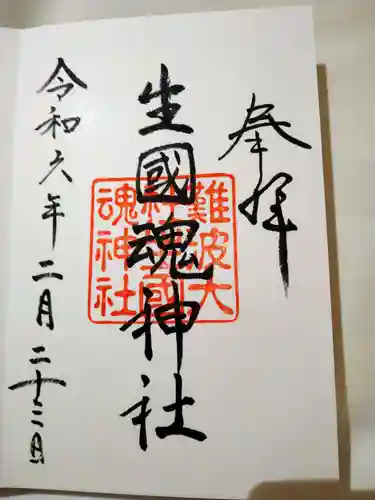 奉拝
生國魂神社
難波大
社生國
魂神社
令和六年二月二十二日